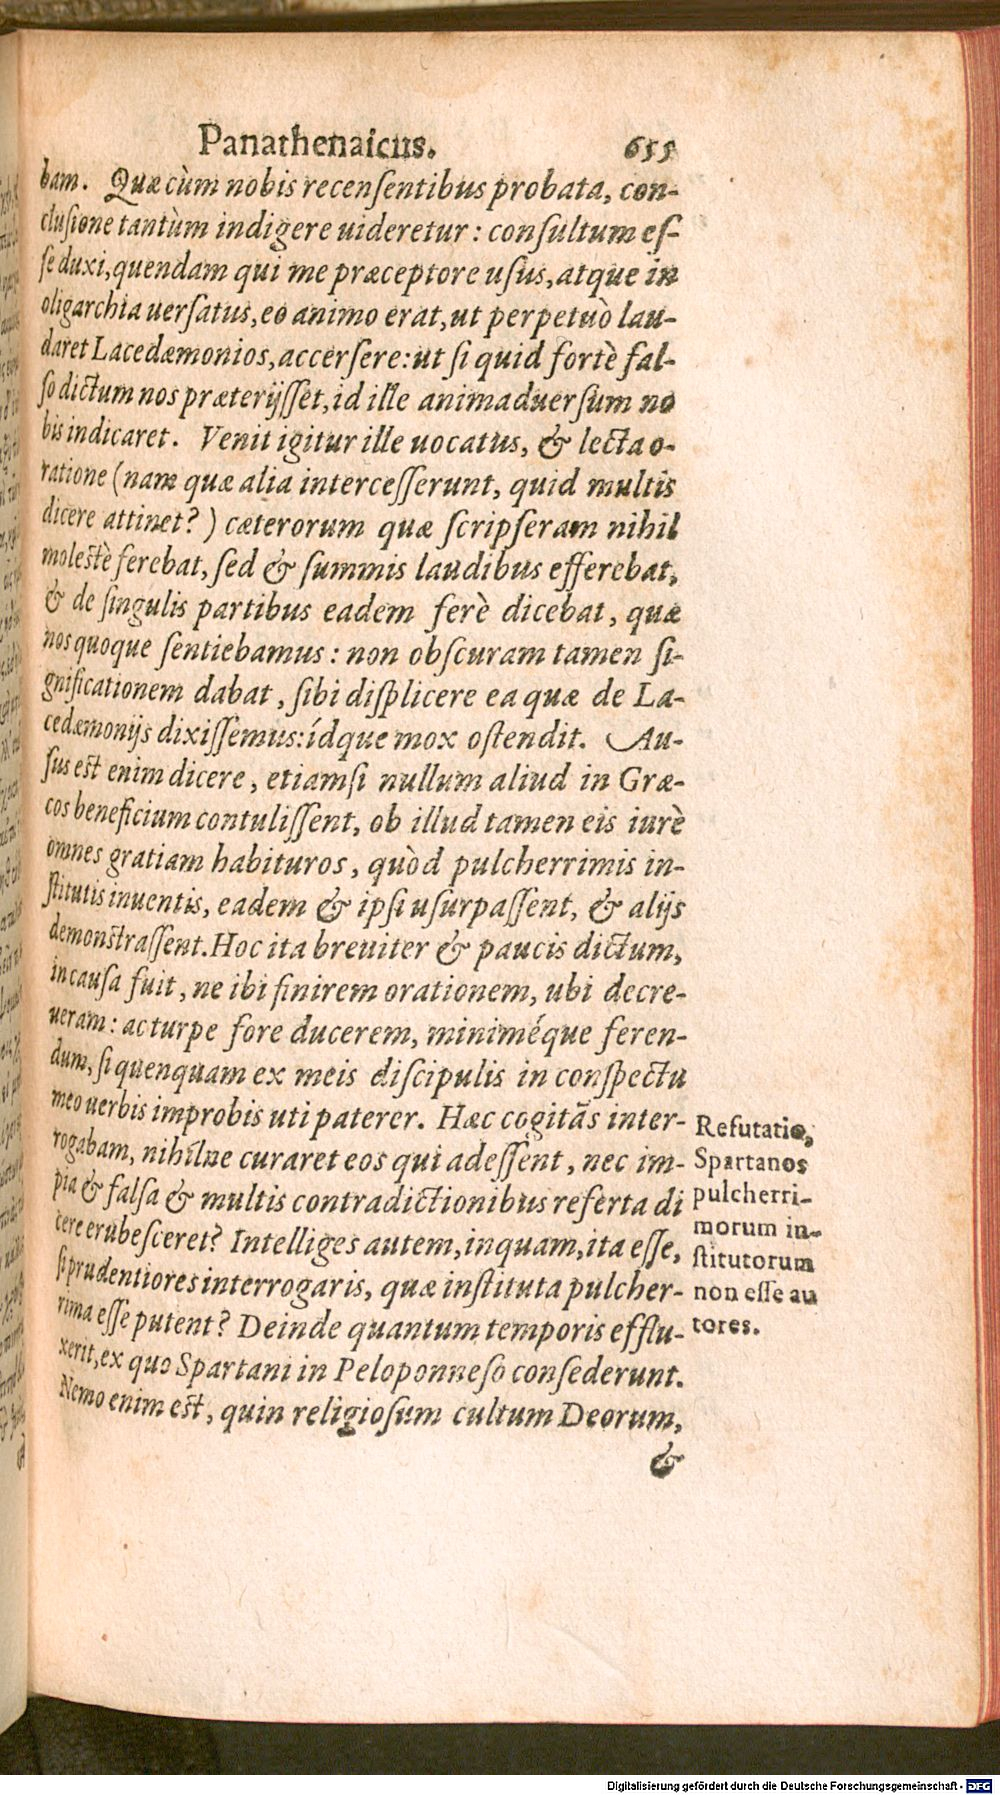 Panathenaicus. 655
bam. Quæ cùm nobis recenſentibus probata, con-
cluſione tantùm indigere uideretur: conſultum eſ-
ſe duxi, quendam qui me præceptore uſus, atque in
oligarchia uerſatus, eo animo erat, ut perpetuò lau-
daret Lacedæmonios, accerſere: ut ſi quid fortè fal-
ſo dictum nos præterijſſet, id ille animaduerſum no
bis indicaret. Venit igitur ille uocatus, & lecta o-
ratione (nam quæ alia interceſſerunt, quid multis
dicere attinet?) cæterorum quæ ſcripſeram nihil
moleſtè ferebat, ſed & ſummis laudibus efferebat,
& de ſingulis partibus eadem ferè dicebat, quæ
nos quoque ſentiebamus: non obſcuram tamen ſi-
gnificationem dabat, ſibi diſplicere ea quæ de La-
cedæmonijs dixiſſemus: ídque mox oſtendit. Au-
ſus eſt enim dicere, etiamſi nullum aliud in Græ-
cos beneficium contuliſſent, ob illud tamen eis iurè
omnes gratiam habituros, quòd pulcherrimis in-
ſtitutis inuentis, eadem & ipſi uſurpaſſent, & alijs
demonſtraſſent. Hoc ita breuiter & paucis dictum,
in cauſa fuit, ne ibi finirem orationem, ubi decre-
ueram: ac turpe fore ducerem, miniméque feren-
dum, ſi quenquam ex meis diſcipulis in conſpectu
meo uerbis improbis uti paterer. Hæc cogitãs inter-
rogabam, nihílne curaret eos qui adeſſent, nec im-
pia & falſa & multis contradictionibus referta di
cere erubeſceret? Intelliges autem, inquam, ita eſſe,
ſi prudentiores interrogaris, quæ inſtituta pulcher-
rima eſſe putent? Deinde quantum temporis efflu-
xerit, ex quo Spartani in Peloponneſo conſederunt.
Nemo enim eſt, quin religioſum cultum Deorum,
&
Refutatio,
Spartanos
pulcherri-
morum in-
ſtitutorum
non eſſe au
tores.
Digitalisierung gefördert durch die Deutsche Forschungsgemeinschaft - DFG